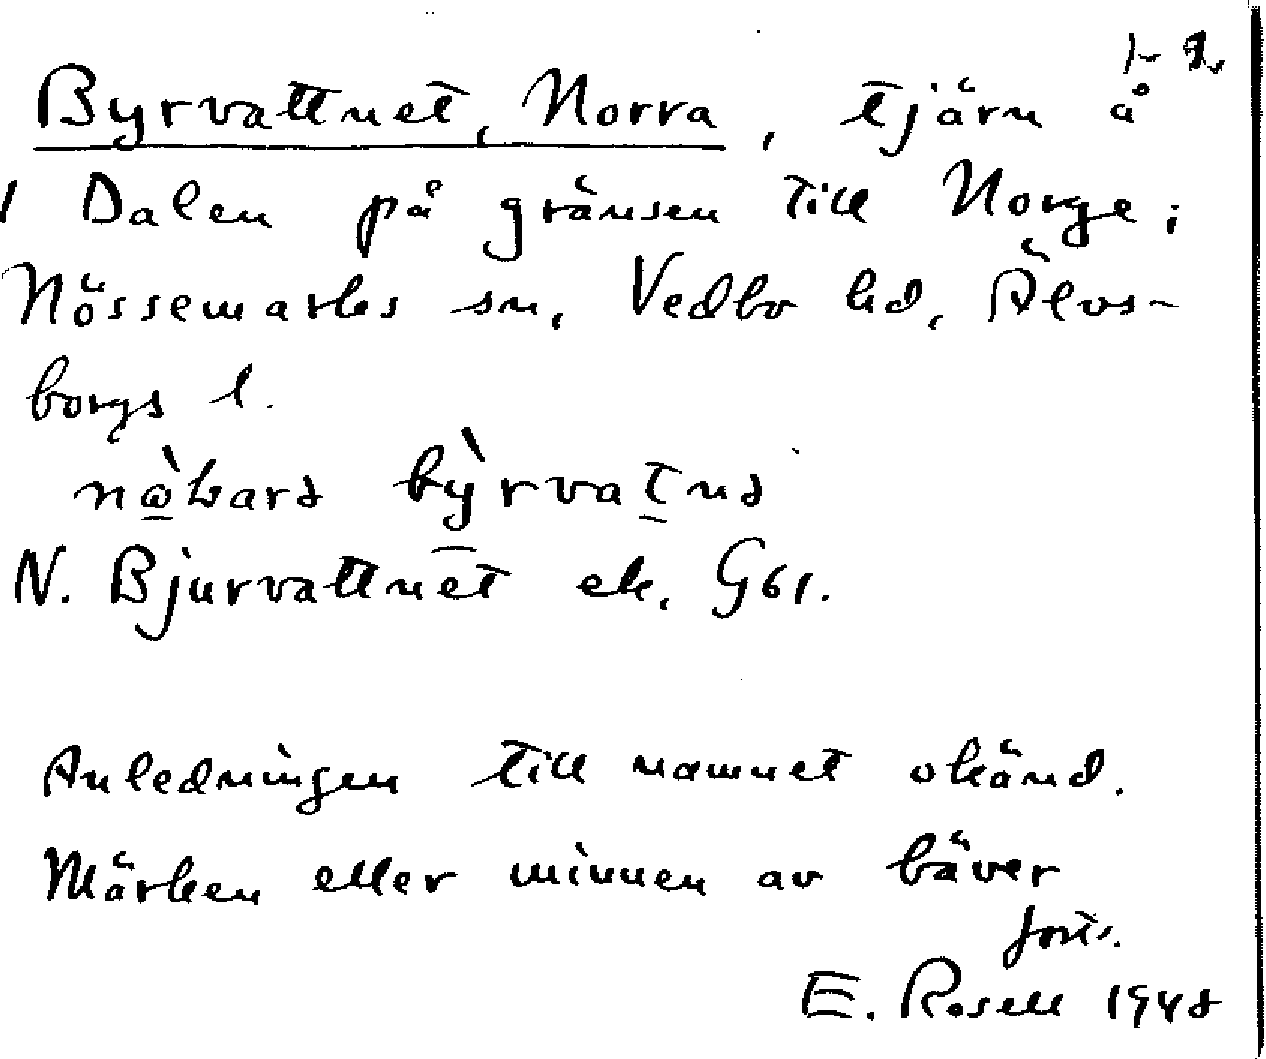 1-2
Byrvattnet, Norra, tjärn å
1 Dalen på gränsen till Norge;
Nössemarks sn, Vedbo hd, Älvs-
borgs l.
byrvatnə
N. Bjurvattnet ek. G61.
Anledningen till namnet okänd.
Märken eller minnen av bäver
forts.
E. Rosell 1948